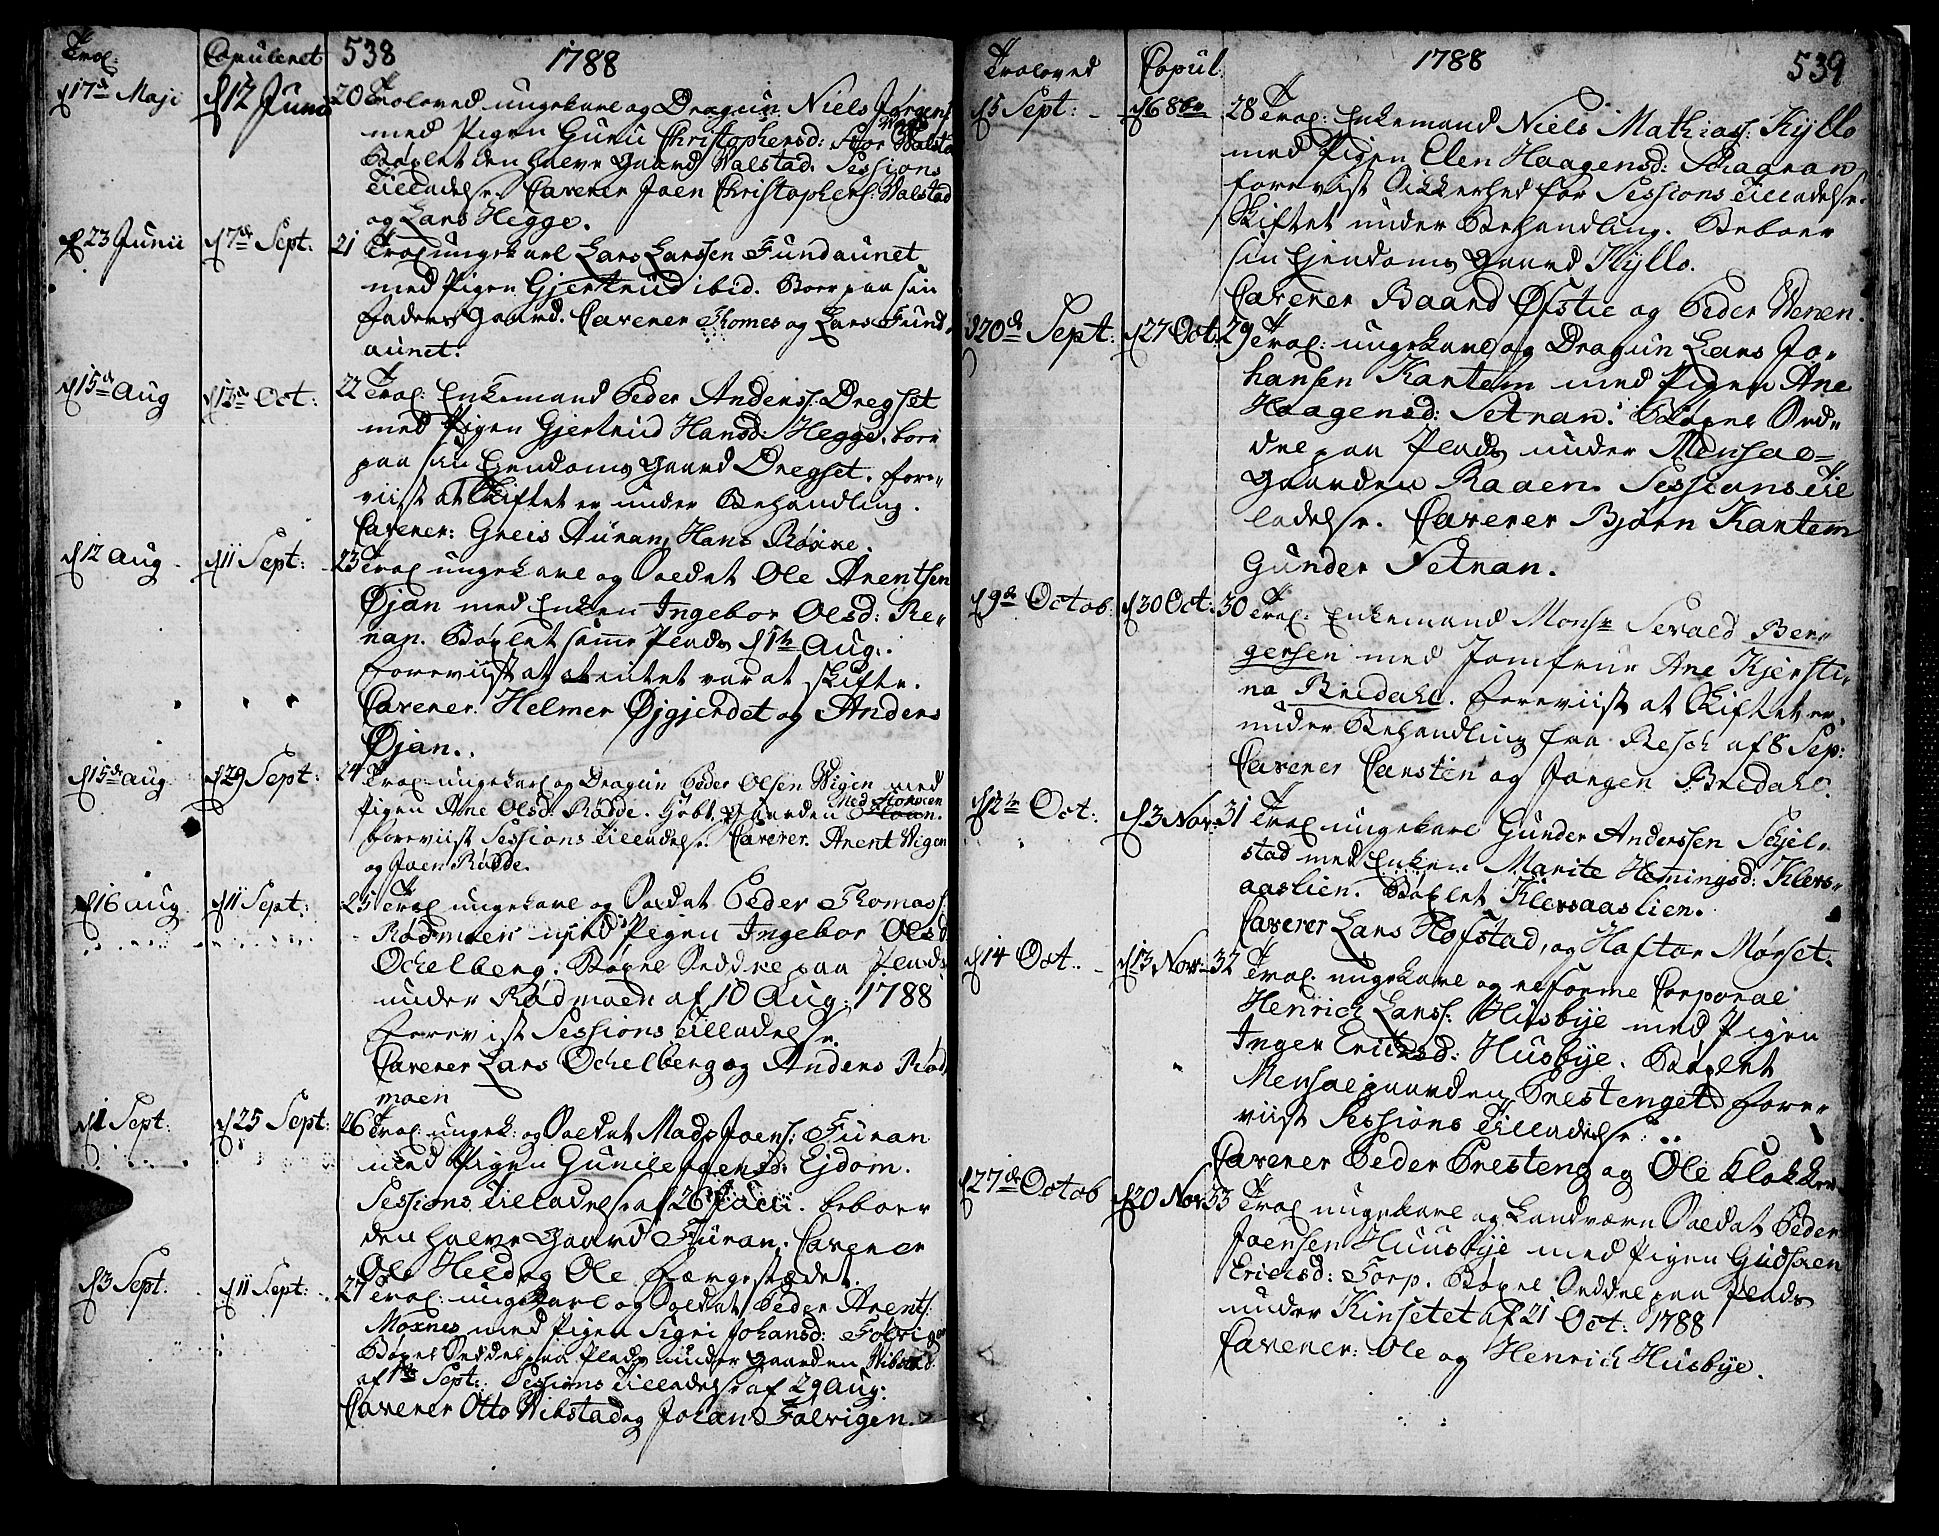 Trol: Copuleret 538 1788
d 17de Maji d 12 Junii 20 Troloved ungekarl og Dragun Niels Jørgens:
med Pigen Guru Christophersd: Stor Walstad
Bøxlet den halve Gaard Walstad. Sessions
Tilladelse. Caverer Joen Christophers: Walstad
og Lars Hegge.
d 23 Junii d 7de Sept: 21 Trol ungekarl Lars Larssen Fundaunet
med Pigen Gjertrud ibid. Boer paa sin
Faders Gaard. Caverer Thomes og Lars Fund-
aunet.
d 15de Aug d 13de Oct: 22 Trol: Enkemand Peder Anderss: Dregset
med Pigen Gjertrud Hansd: Hegge, boer
paa sin Ejendoms Gaard Dregset. fore-
viist at Skiftet er under Behandling.
Caverer: Greis Auran, Hans Røxne.
d 12 Aug d 11 Sept: 23 Trol ungekarl og Soldat Ole Arentsen
Øjan med Enken Ingebor Olsd: Re-
nan. Bøxlet samme Plads d 1te Aug:
foreviist at intet var at skifte.
Caverer Helmer Øjgjerdet og Anders
Øjan.
d 15de Aug d 29 Sept: 24 Trol: ungekarl og Dragun Peder Olsen Wigen med
Pigen Ane Olsd: Rødde. Gaarden
foreviist Sessions Tilladelse. Caverer. Arent Wigen
og Joen Rødde.
d 16 Aug d 11 Sept: 25 Trol ungekarl og Soldat Peder Thomass:
Rødmoen med Pigen Ingebor Olsd
Ochelberg. Bøxel Seddel paa Plads
under Rødmoen af 10 Aug: 1788
foreviist Sessions Tilladelse.
Caverer Lars Ochelberg og Anders Rød
moen
d 1 Sept: d 25 Sept: 26 Trol: ungek: og Soldat Mads Joens: Furan
med Pigen Gunild Ejdom.
Sessions Tilladelse af 26 Julii. beboer
den halve Gaard Furan. Caverer
Ole Held og Ole Færgestædet.
d 3 Sept: d 11 Sept: 27 Trol: ungekarl og Soldat Peder Arents:
Moxnes med Pigen Sigri Johansd: Folvigen
Bøxel Seddel paa Plads under Gaarden Wibstad
af 1te Sept: Sessions Tilladelse af 29 Aug:
Caverer Otto Wibstad og Johan Falvigen.
Troloved Copul: 1788 539
d 5 Sept: d 6 8br 28 Trol: Enkemand Niels Mathiass: Kyllo
med Pigen Elen Haagensd:
foreviist Sikkerhed for Sessions Tilladelse.
Skiftet under Behandling. Beboer
sin Ejendoms Gaard Kyllo.
Caverer Baard Øfstie og Peder Weren.
d 20de Sept: d 27 Oct: 29 Trol: ungekarl og Dragun Lars Jo-
hansen Kantem med Pigen Ane
Haagensd: Setnan. Bøxel Sed-
del paa Plads under Mensal-
Gaarden Raaen. Sessions Til
ladelse. Caverer Bjørn Kantem
Gunder Setnan.
d 9de Octob: d 30 Oct: 30 Trol: Enkemand Monsr Sevald Ber-
gersen med Jomfrue Ane Kjersti-
na Bredahl. foreviist at Skiftet er
under Behandling fra Resch af 8 Sep:
Caverer Carsten og Jørgen Bredahl.
d 12te Oct: d 3 Nov: 31 Trol ungekarl Gunder Anderssen Skjel-
stad med Enken Marite Hemingsd: Klevs-
aaslien. Bøxlet Klevsaaslien.
Caverer Lars Hofstad, og Haftor Mørset.
d 14 Oct: d 13 Nov: 32 Trol: ungekarl og reforme Corporal
Henrich Larss: Husbye med Pigen
Inger Ericksd: Husbye. Bøxlet
Mensalgaarden Prestenget. fore-
viist Sessions Tilladelse.
Caverer Peder Presteng og Ole Klokker.
d 27de Octob d 20 Nov: 33 Trol ungekarl og Landværn Soldat Peder
Joensen Huusbye med Pigen Gudsren
Ericksd: Forp. Bøxel Seddel paa Plads
under Kinsetet af 21 Oct: 1788
Caverer: Ole og Henrich Husbye.